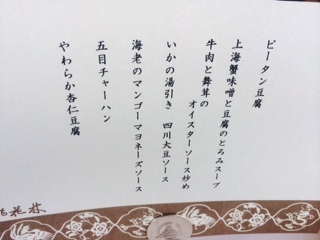 ピータン豆腐
上海蟹味噌と豆腐のとろみスープ
牛肉と舞茸の
オイスターソース炒め
いかの湯引き 四川大豆ソース
海老のマンゴーマヨネーズソース
五目チャーハン
やわらか杏仁豆腐
花林